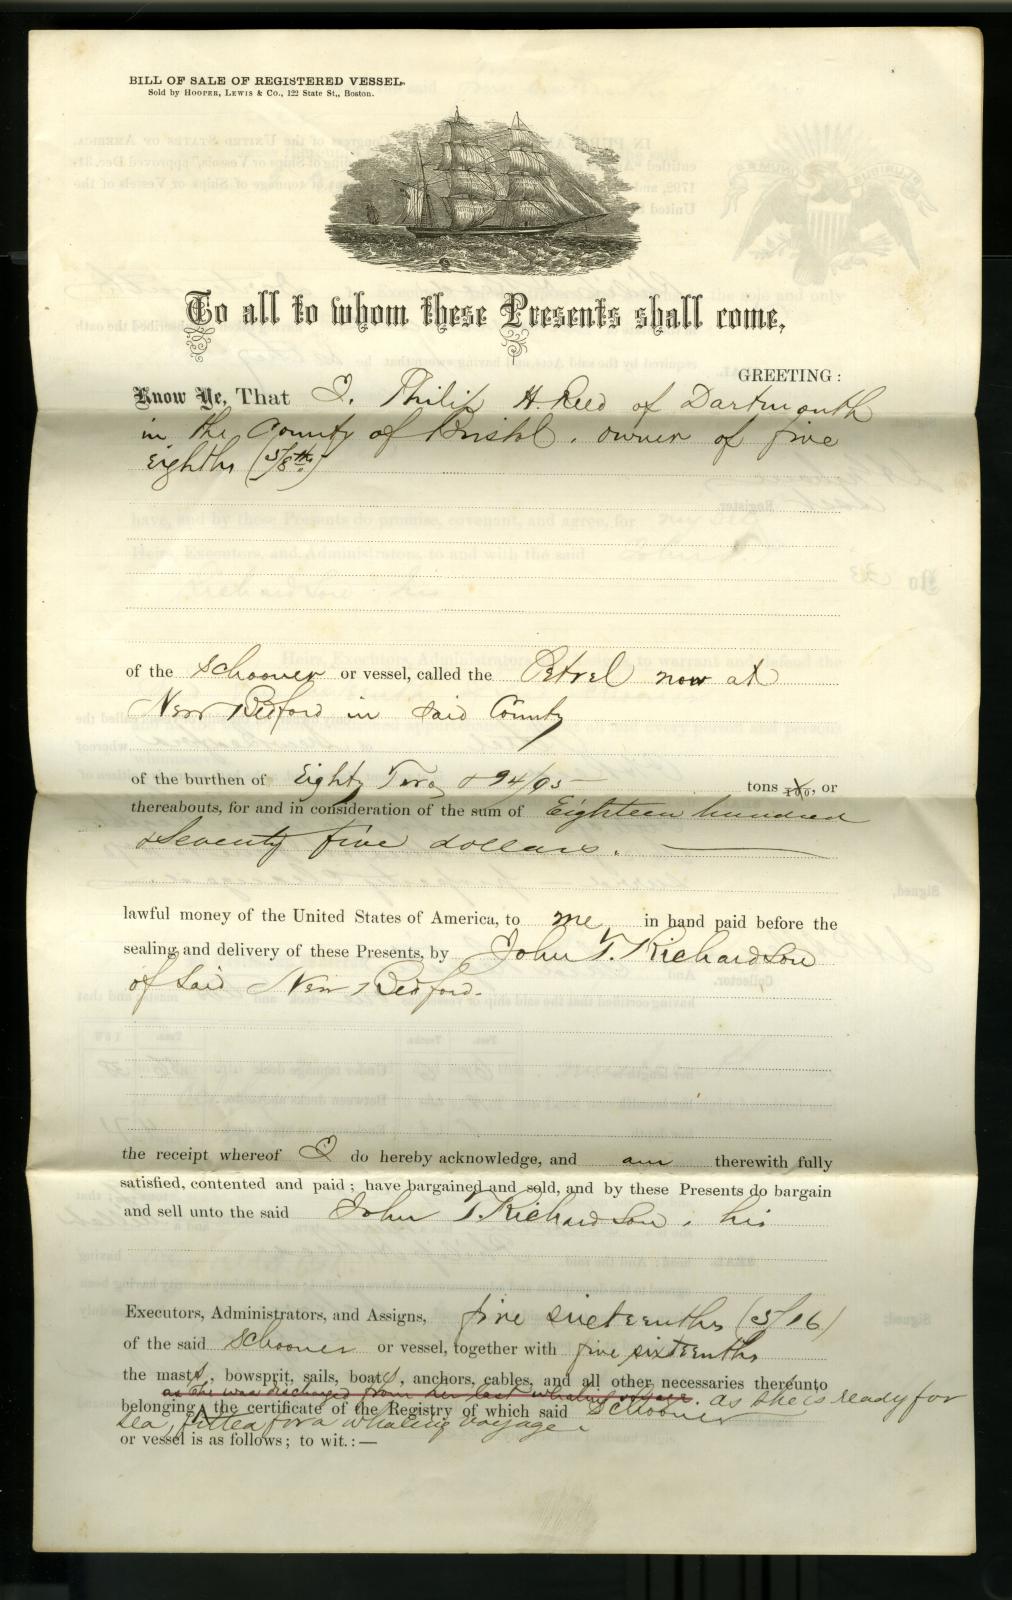 BILL OF SALE OF REGISTERED VESSEL.
Sold by HOOPER, LEWIS & Co., 122 State St., Boston.
To all to whom these Presents shall come,
GREETING:
Know Ye, That I, Philip H. Reed of Dartmouth
in the County of Bristol, owner of five
eighths (5/8ths)
of the Schooner or vessel, called the Petrel now at
New Bedford in said County
of the burthen of Eighty Two & 94/95 tons 100, or
thereabouts, for and in consideration of the sum of Eighteen hundred
& Seventy five dollars.
lawful money of the United States of America, to me in hand paid before the
sealing and delivery of these Presents, by John T. Richardson
of said New Bedford.
the receipt whereof I do hereby acknowledge, and am therewith fully
satisfied, contented and paid; have bargained and sold, and by these Presents do bargain
and sell unto the said John T. Richardson, his
Executors, Administrators, and Assigns, five sixteenths (5/16)
of the said Schooner or vessel, together with five sixteenths
the masts, bowsprit, sails, boats, anchors, cables, and all other necessaries thereunto
as she was discharged from her last whaling voyage. as she is ready for
belonging, the certificate of the Registry of which said Schooner
sea, fitted for a whaling voyage.
or vessel is as follows; to wit.:—